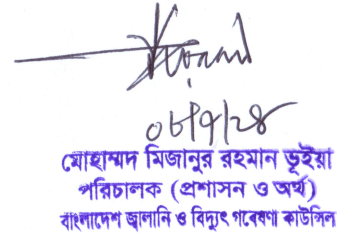 ০৮/৭/২৪
মোহাম্মদ মিজানুর রহমান ভূইয়া
পরিচালক (প্রশাসন ও অর্থ)
বাংলাদেশ জ্বালানি ও বিদ্যুৎ গবেষণা কাউন্সিল